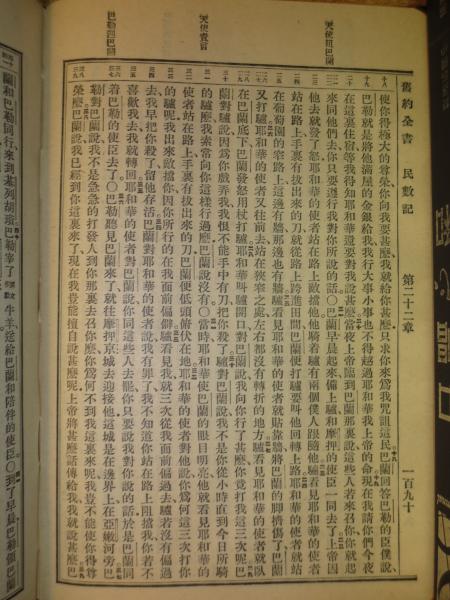 舊約全書 民數記 第二十二章 一百九十
天使阻巴蘭
使你得極大的尊榮你向我要甚麽我就給你只求你來爲我咒詛這民巴蘭回答巴勒的臣僕說
巴勒就是將他滿屋的金銀給我我行大事小事也不得越過耶和華我上帝的命現在我請你們今夜
在這裏住宿等我得知耶和華還要對我說甚麽當夜上帝臨到巴蘭那裏說這些人若來召你你就起
來同他們去你只要遵行我對你所說的話○巴蘭早晨起來備上驢和摩押的使臣一同去了上帝因
他去就發了怒耶和華的使者站在路上敵擋他他騎着驢有兩個僕人跟隨他驢看見耶和華的使者
站在路上手裏有拔出來的刀就從路上跨進田間巴蘭便打驢要叫他回轉上路耶和華的使者就站
在葡萄園的窄路上這邊有牆那邊也有牆驢看見耶和華的使者就貼靠牆將巴蘭的脚擠傷了巴蘭
又打驢耶和華的使者又往前去站在狹窄之處左右都沒有轉折的地方驢看見耶和華的使者就臥
在巴蘭底下巴蘭發怒用杖打驢耶和華叫驢開口對巴蘭說我向你行了甚麽你竟打我這三次呢巴
蘭對驢說因爲你戲弄我我恨不能手中有刀把你殺了驢對巴蘭說我不是你從小時直到今日所騎
的驢麽我素常向你這樣行過麽巴蘭說沒有○當時耶和華使巴蘭的眼目明亮他就看見耶和華的
使者站在路上手裏有拔出來的刀巴蘭便低頭俯伏在地耶和華的使者對他說你爲何這三次打你
的驢呢我出來敵擋你因你所行的在我面前偏僻驢看見我就三次從我面前偏過去驢若沒有偏過
去我早把你殺了留他存活巴蘭對耶和華的使者說我有罪了我不知道你站在路上阻擋我你若不
喜歡我去我就轉回耶和華的使者對巴蘭說你同這些人去罷你只要說我對你說的話於是巴蘭同
着巴勒的使臣去了○巴勒聽見巴蘭來了就往摩押京城去迎接他這城是在邊界上在亞嫩河旁巴
勒對巴蘭說我不是急急的打發人到你那裏去召你麽你爲何不到我這裏來呢我豈不能使你得尊
榮麽巴蘭說我已經到你這裏來了現在我豈能擅自說甚麽呢上帝將甚麽話傳給我我就說甚麽巴
蘭和巴勒同行來到基列胡瑣巴勒宰了牛羊送給巴蘭和陪伴的使臣○到了早晨巴勒領巴蘭